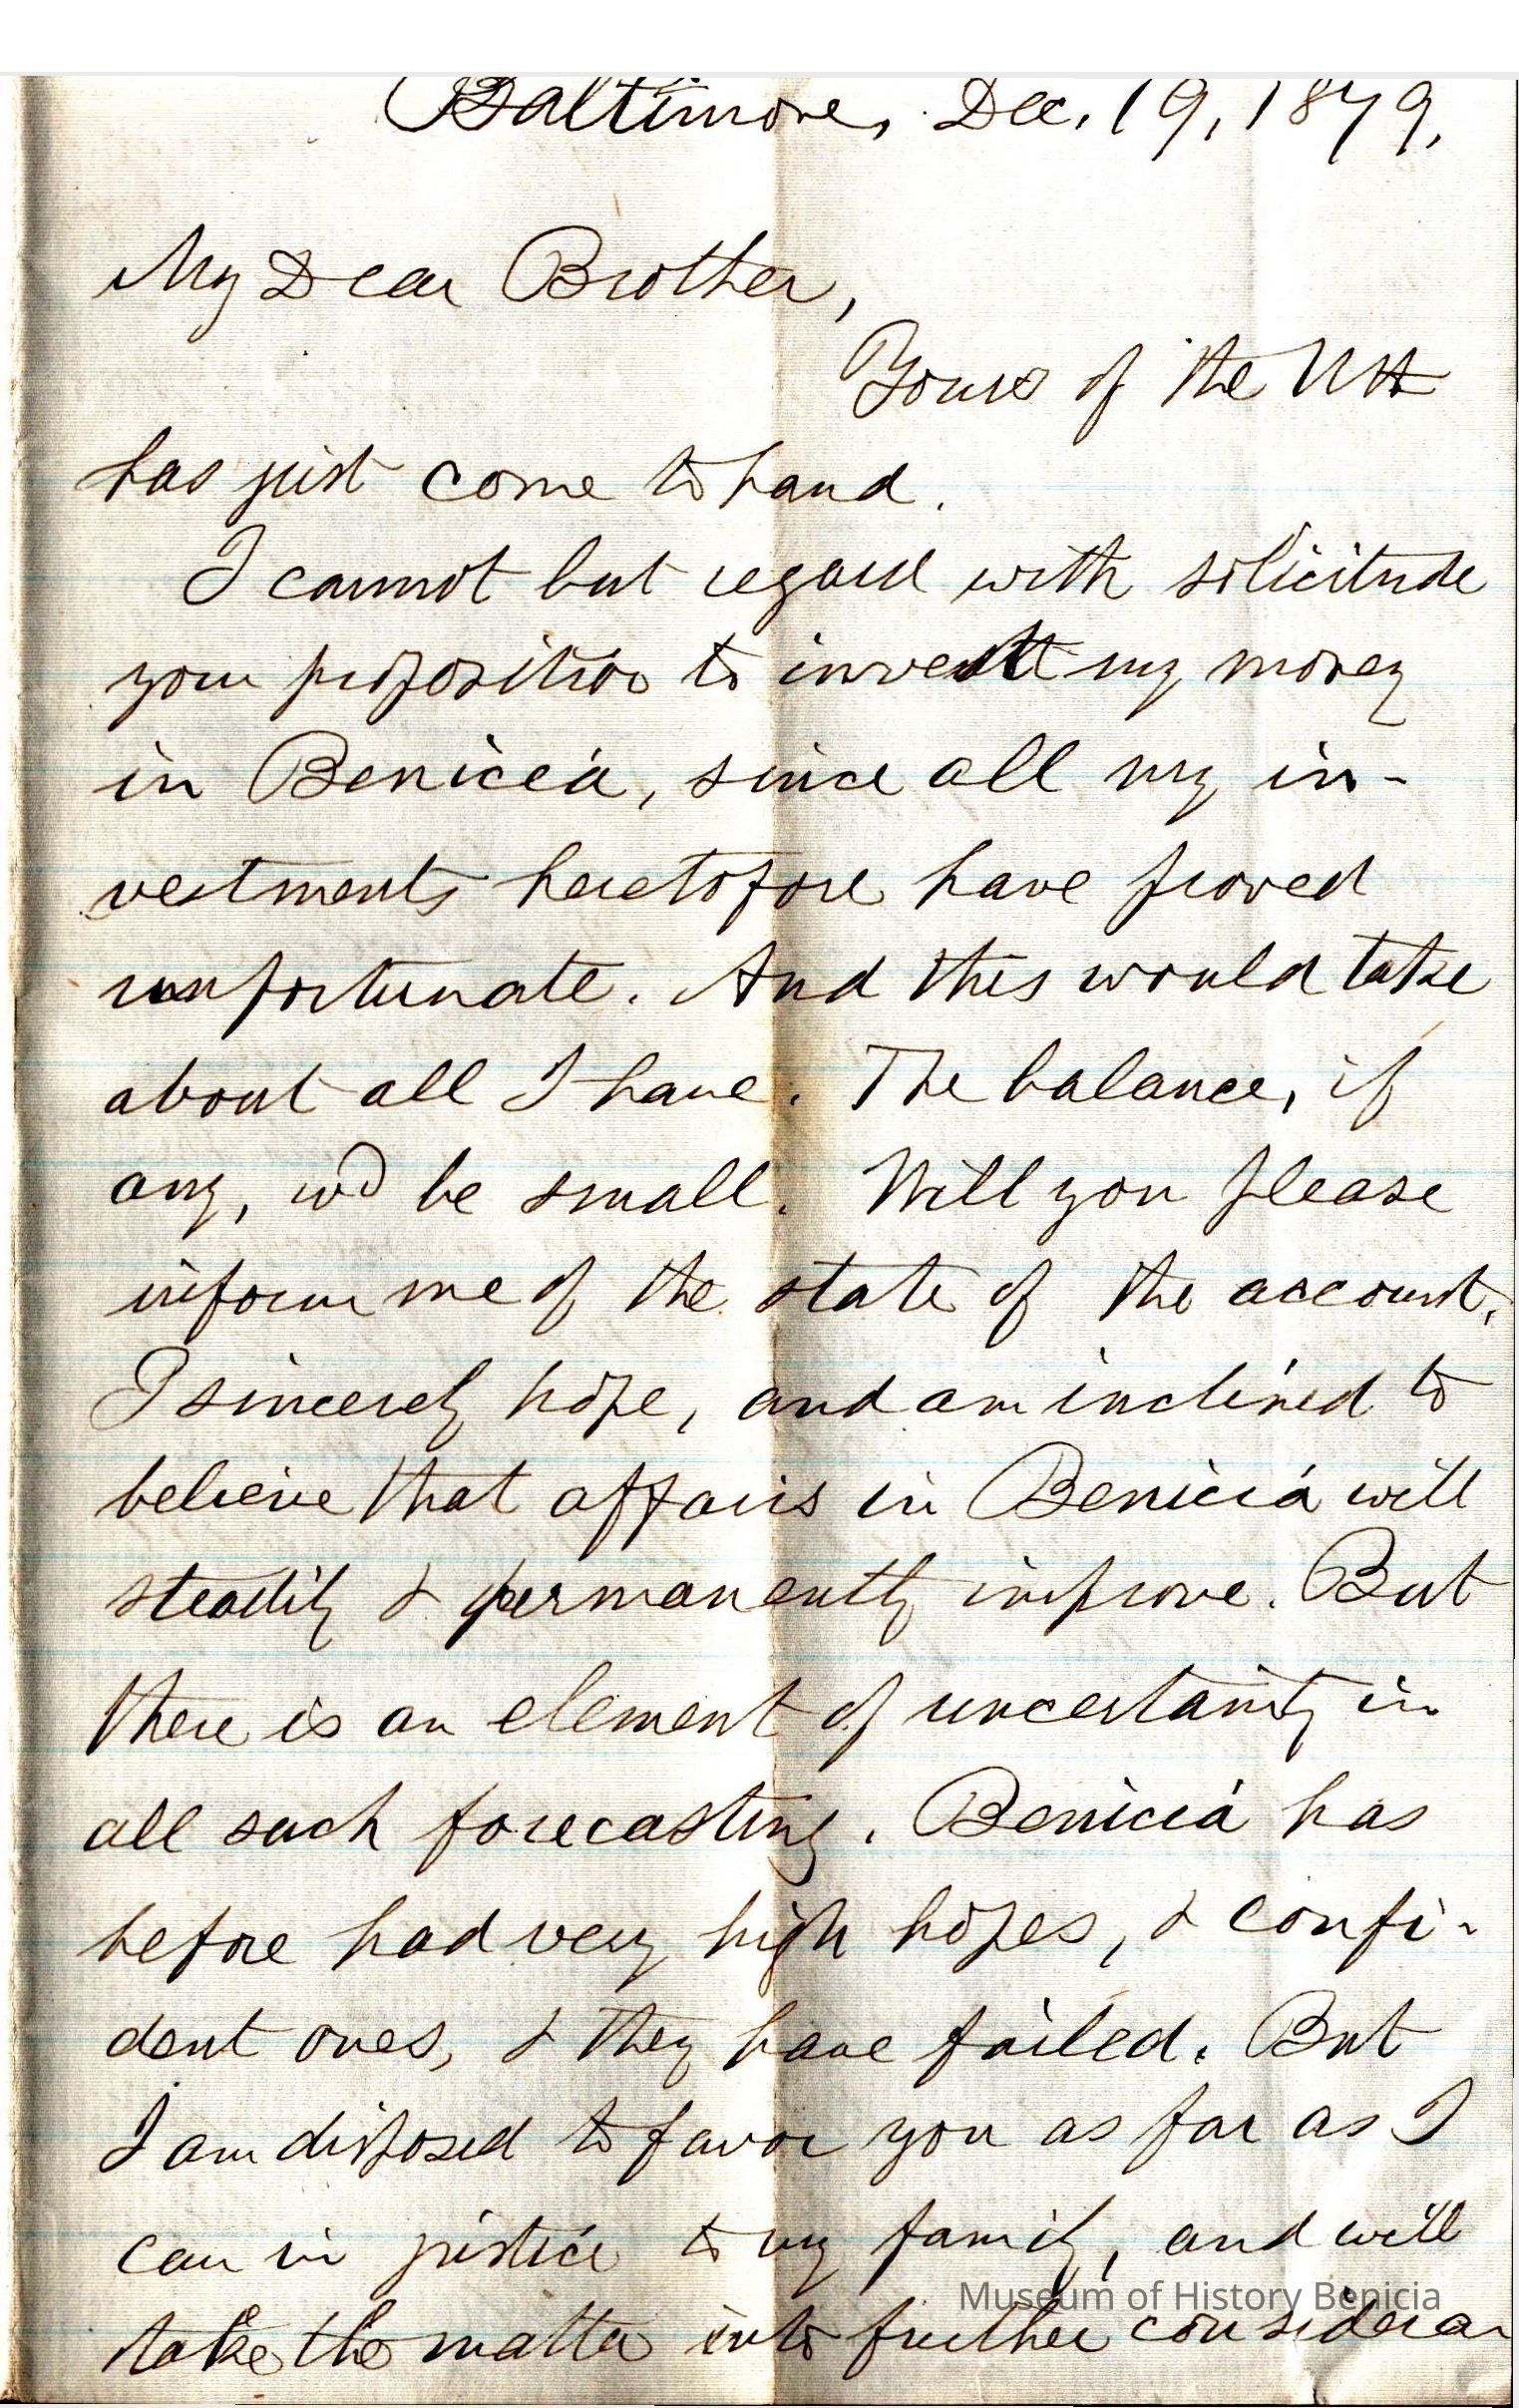 Baltimore, Dec. 19, 1879.
My Dear Brother,
Yours of the
has just come to hand.
I cannot but regard with solicitude
your proposition to invest my money
in Benicia, since all my in-
vestments heretofore have proved
unfortunate. And this would take
about all I have. The balance, if
any, wd be small. Will you please
inform me of the state of the account.
I sincerely hope, and am inclined to
believe that affairs in Benicia will
steadily & permanently improve. But
there is an element of uncertainty in
all such forecasting. Benicia has
before had very high hopes, & confi-
dent ones, & they have failed. But
I am disposed to favor you as far as I
can in justice to my family, and will
take the matter into further considera
Museum of History Benicia